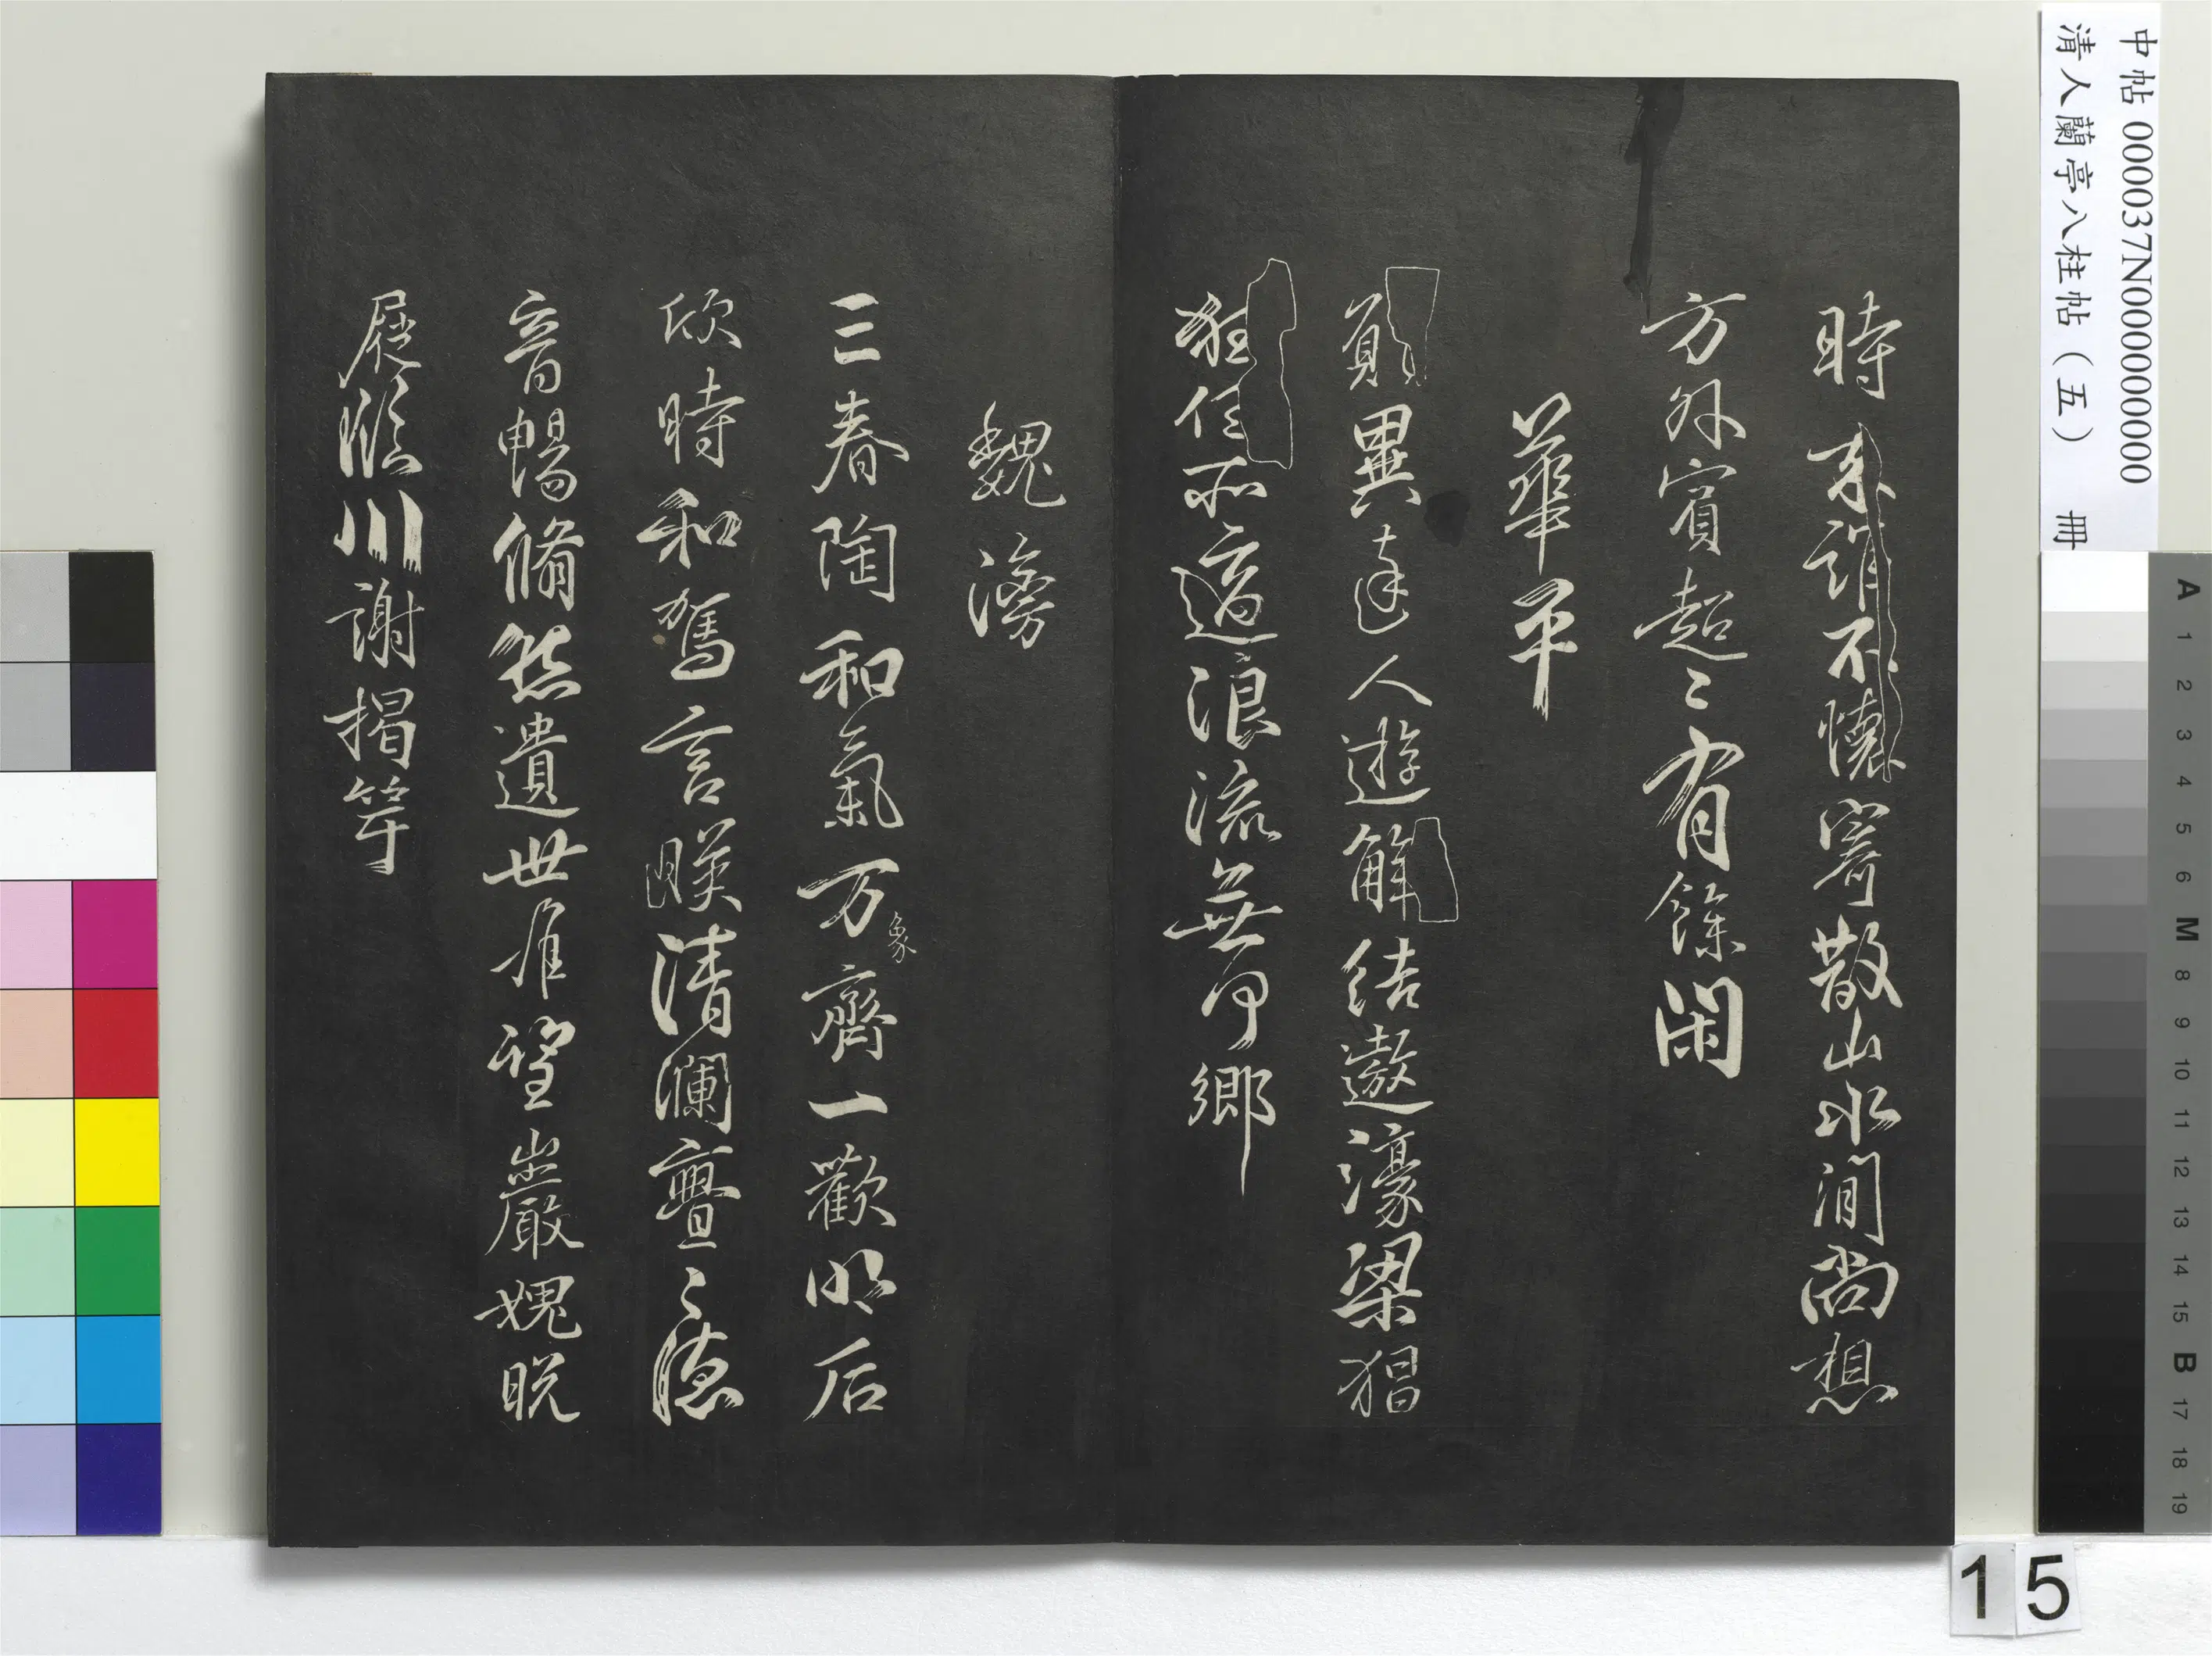 中帖 000037N000000000
清人蘭亭八柱帖（五） 冊
時来誰不懷寄散山水間尚想
方外賓超〻有餘閑
華平
願異達人遊解結遨濠梁猖
狂任所適浪流無何鄉
魏滂
三春陶和氣万象齊一歡明后
欣時和駕言映清瀾亹〻德
音暢脩然遺世望巖愧脫
屣臨川謝揭竿
A 1 2 3 4 5 6 M 8 9 10 11 12 13 14 15 B 17 18 19
15